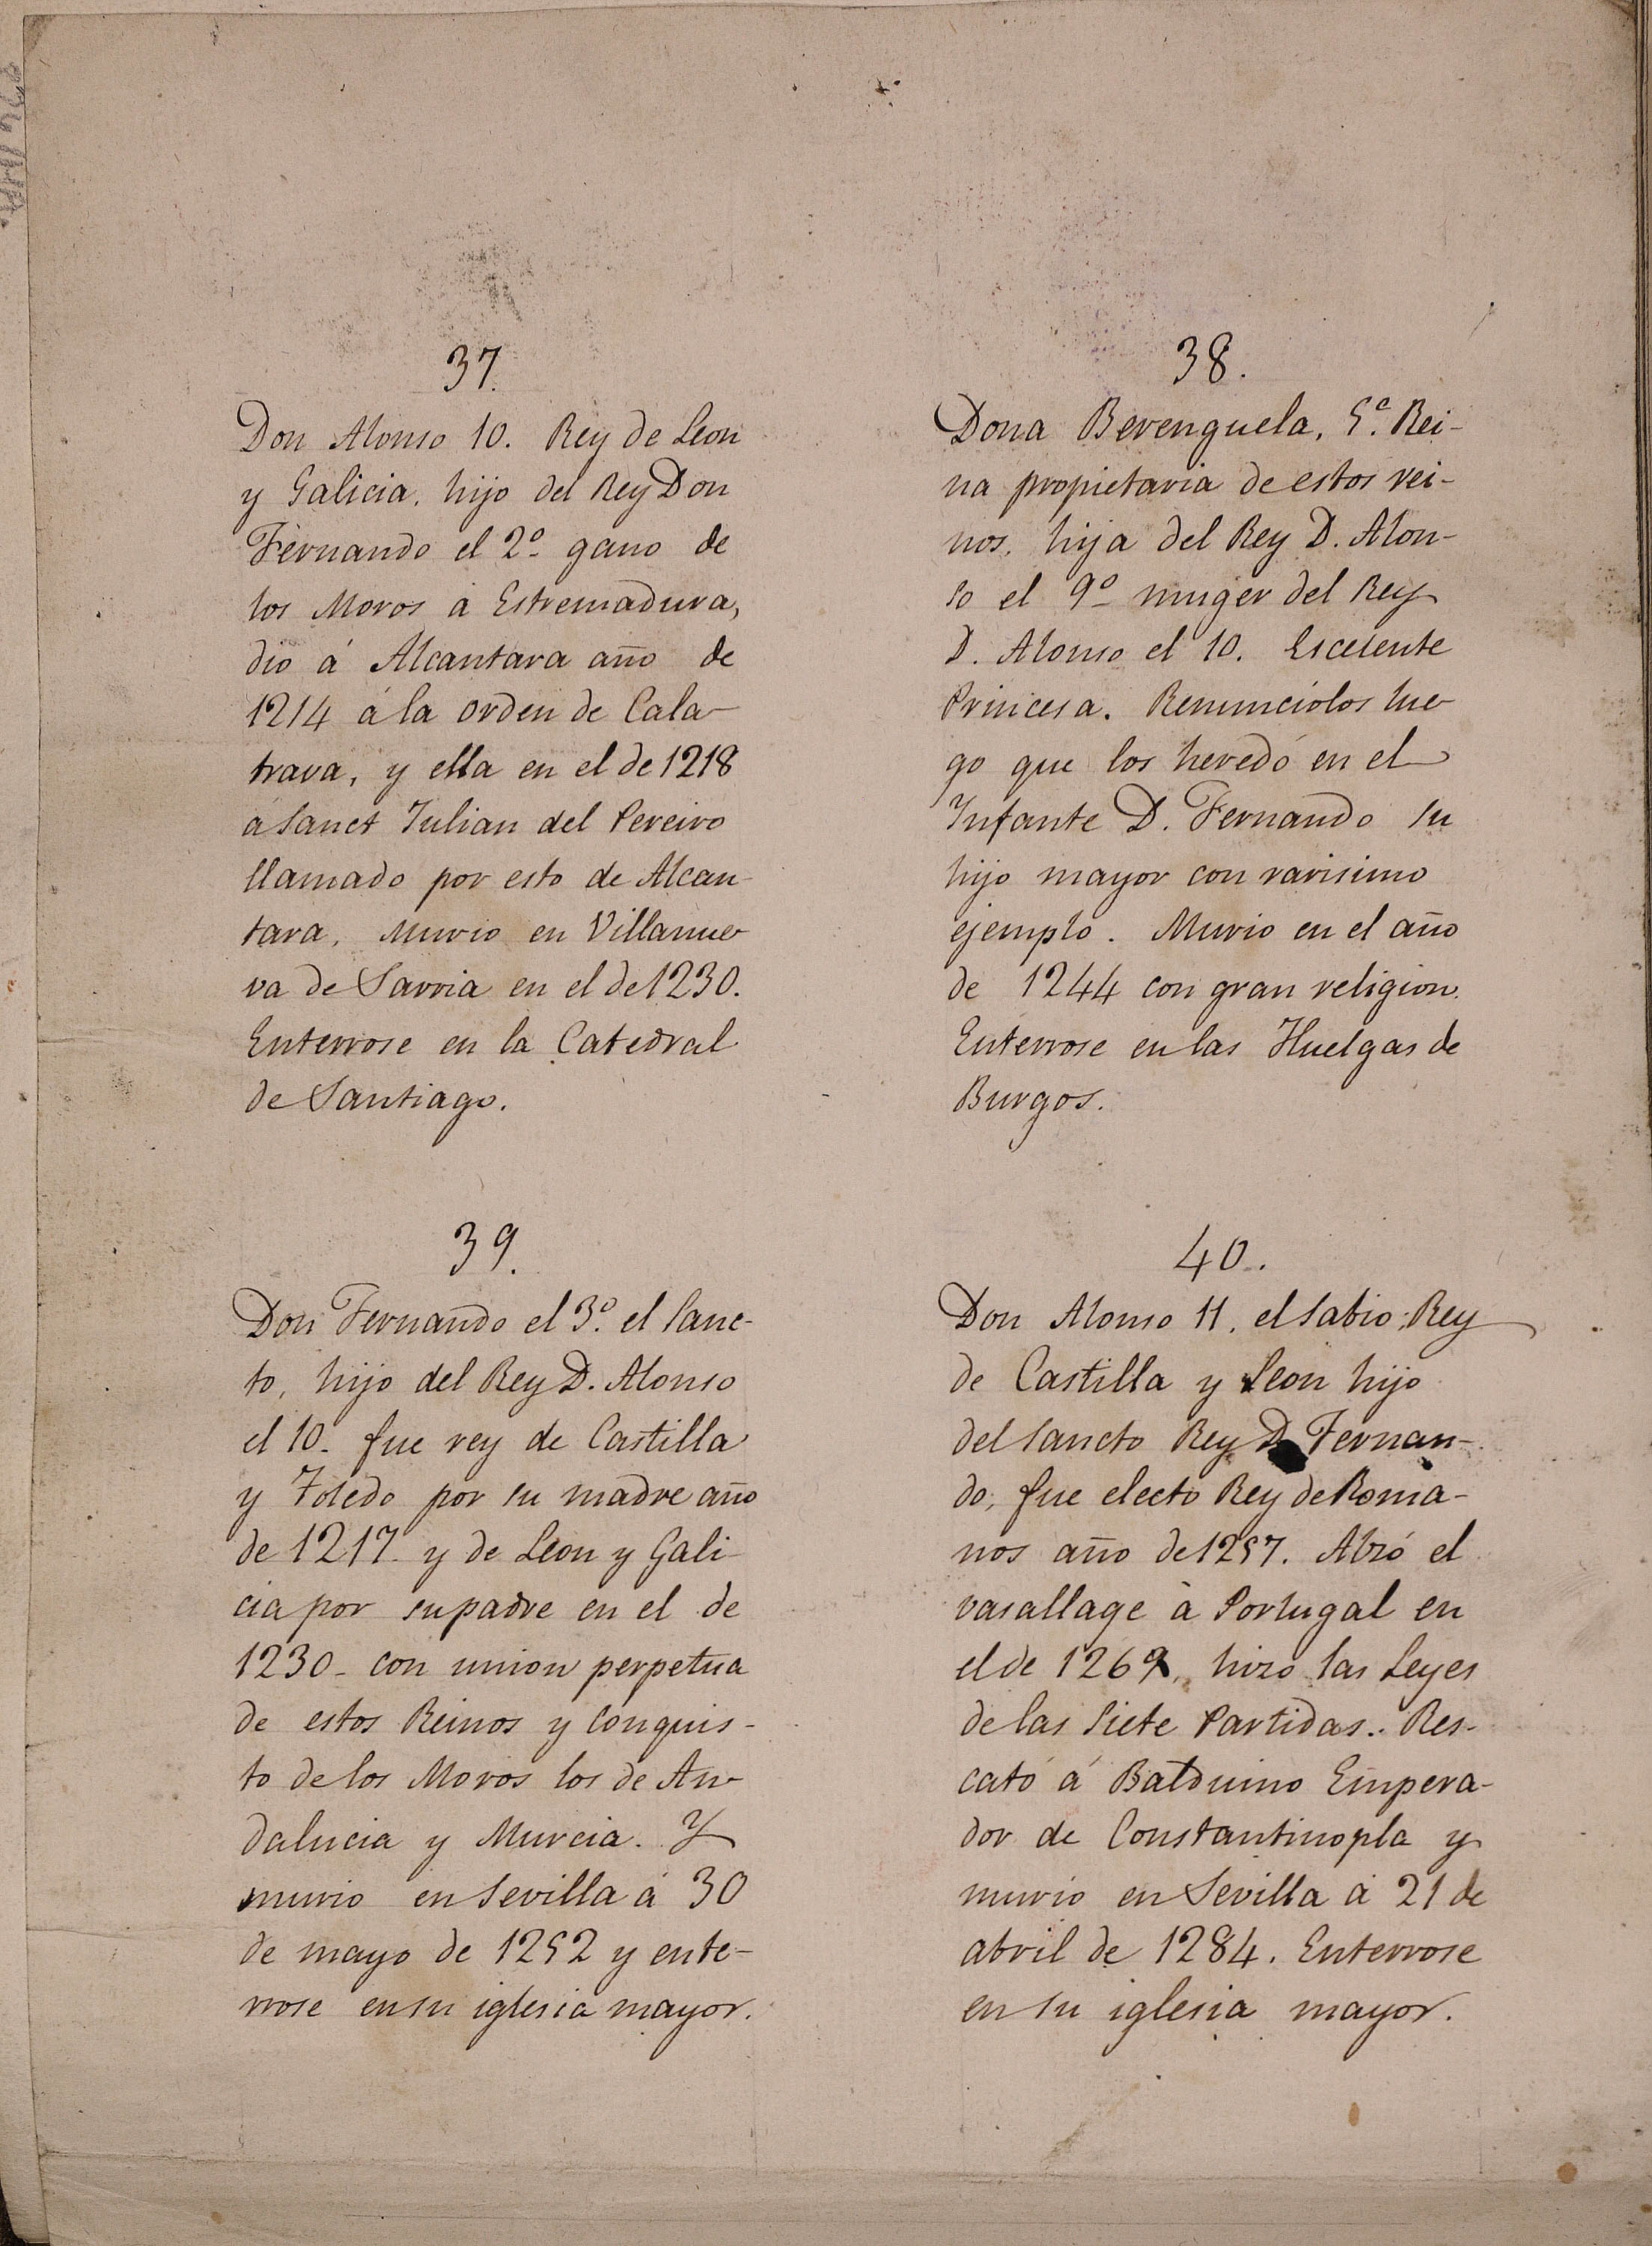 37.
Don Alonso 10. Rey de Leon
y Galicia, hijo del Rey Don
Fernando el 2º gano de
los Moros a Estremadura,
dio á Alcantara año de
1214 á la orden de Cala-
trava, y ella en el de 1218
a Sanct Julian del Pereiro
llamado por esto de Alcan-
tara, Murio en Villanue-
va de Sarria en el de 1230.
Enterrose en la Catedral
de Santiago.
38.
Dona Berenguela, 5ª. Rei-
na propietaria de estos rei-
nos, hija del Rey D. Alon-
so el 9º muger del Rey
D. Alonso el 10. Escelente
Princesa. Renunciólos lue-
go que los heredó en el
Infante D. Fernando su
hijo mayor con rarisimo
ejemplo. Murio en el año
de 1244 con gran religion.
Enterrose en las Huelgas de
Burgos.
39.
Don Fernando el 3º. el Sanc-
to, hijo del Rey D. Alonso
el 10. fue rey de Castilla
y Toledo por su madre año
de 1217 y de Leon y Gali-
cia por su padre en el de
1230 - con union perpetua
de estos Reinos y conquis-
to de los Moros los de An-
dalucia y Murcia. Y
murio en Sevilla á 30
de mayo de 1252 y ente-
rrose en su iglesia mayor.
40.
Don Alonso 11. el Sabio, Rey
de Castilla y Leon hijo
del Sancto Rey D. Fernan-
do, fue electo Rey de Roma-
nos año de 1257. Alzó el
vasallage à Portugal en
el de 1269, hizo las Leyes
de las Siete Partidas. Res-
cató á Balduino Empera-
dor de Constantinopla y
murio en Sevilla á 21 de
abril de 1284. Enterrose
en su iglesia mayor.